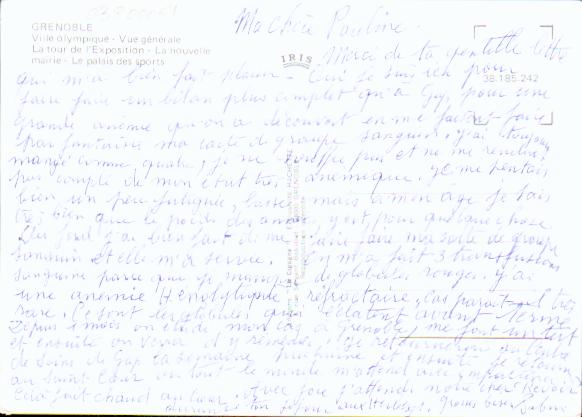 GRENOBLE
Ville olympique - Vue générale
La tour de l'Exposition - La nouvelle
mairie - Le palais des sports
IRIS
38.185.242
Ma chère Pauline.
Merci de ta gentille lettre
qui m'a bien fait plaisir - Oui je suis ici pour
faire faire un bilan plus complet qu'à Gap, pour une
grande anémie qu'on a découvert en me faisant faire
par fantaisie ma carte de groupe sanguin. j'ai toujours
mangé comme quatre, je ne souffre pas et ne me rendais
pas compte de mon état très anémique. je me sentais
bien, un peu fatiguée, lasse mais à mon âge je sais
très bien que le poids des années y est pour quelque chose
Au fond j'ai bien fait de me faire faire ma carte de groupe
sanguin et elle m'a servie. On m'a fait 3 transfusions
sanguine parce que je manque de globules rouges. j'ai
une anémie Hémolytique réfractaire, cas paraît-il très
rare. Ce sont les globules qui éclatent avant terme
Depuis on étudie mon cas à Grenoble, me font un test
et ensuite on verra d'y remédier. Je retournerai au Centre
de Soins de Gap la semaine prochaine et ensuite je retourne
au Sacré Cœur où tout le monde m'attend avec impatience
Cela fait chaud au cœur. Avec joie j'attends notre
durant ton séjour aux Gros bisers